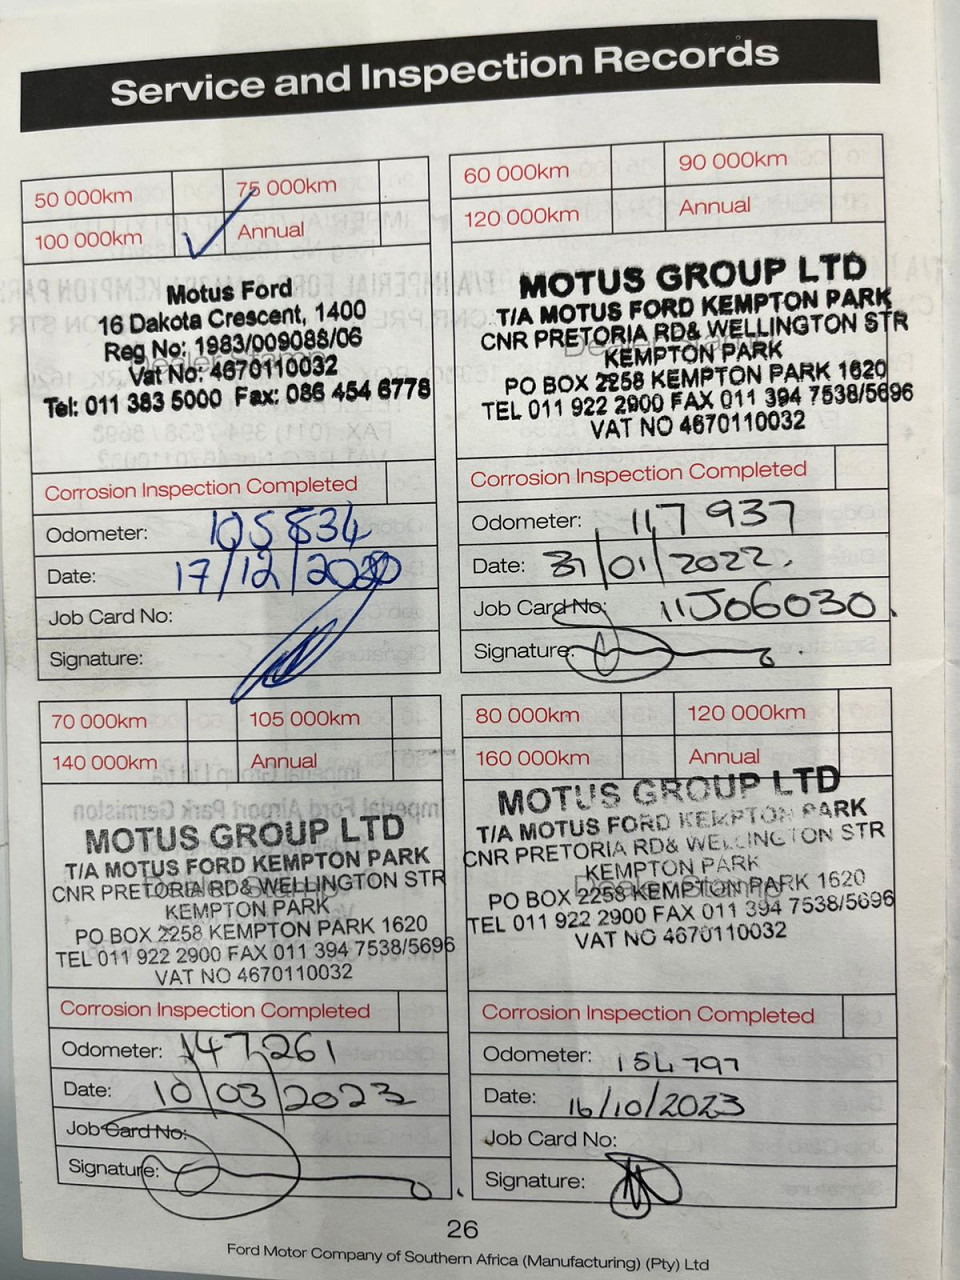 Service and Inspection Records
50 000km
75 000km
100 000km
Annual
Motus Ford
16 Dakota Crescent, 1400
Reg No: 1983/009088/06
Vat No: 4670110032
Tel: 011 383 5000 Fax: 086 454 6778
Corrosion Inspection Completed
Odometer: 105834
Date: 17/12/2020
Job Card No:
Signature:
60 000km
90 000km
120 000km
Annual
MOTUS GROUP LTD
T/A MOTUS FORD KEMPTON PARK
CNR PRETORIA RD& WELLINGTON STR
KEMPTON PARK
PO BOX 2258 KEMPTON PARK 1620
TEL 011 922 2900 FAX 011 394 7538/5696
VAT NO 4670110032
Corrosion Inspection Completed
Odometer: 117 937
Date: 31/01/2022.
Job Card No: 11J06030.
Signature:
70 000km
105 000km
140 000km
Annual
MOTUS GROUP LTD
T/A MOTUS FORD KEMPTON PARK
CNR PRETORIA RD& WELLINGTON STR
KEMPTON PARK
PO BOX 2258 KEMPTON PARK 1620
TEL 011 922 2900 FAX 011 394 7538/5696
VAT NO 4670110032
Corrosion Inspection Completed
Odometer: 147,261
Date: 10/03/2023
Job Card No:
Signature:
80 000km
120 000km
160 000km
Annual
MOTUS GROUP LTD
T/A MOTUS FORD KEMPTON PARK
CNR PRETORIA RD& WELLINGTON STR
KEMPTON PARK
PO BOX 2258 KEMPTON PARK 1620
TEL 011 922 2900 FAX 011 394 7538/5696
VAT NO 4670110032
Corrosion Inspection Completed
Odometer: 154 797
Date: 16/10/2023
Job Card No:
Signature:
26
Ford Motor Company of Southern Africa (Manufacturing) (Pty) Ltd